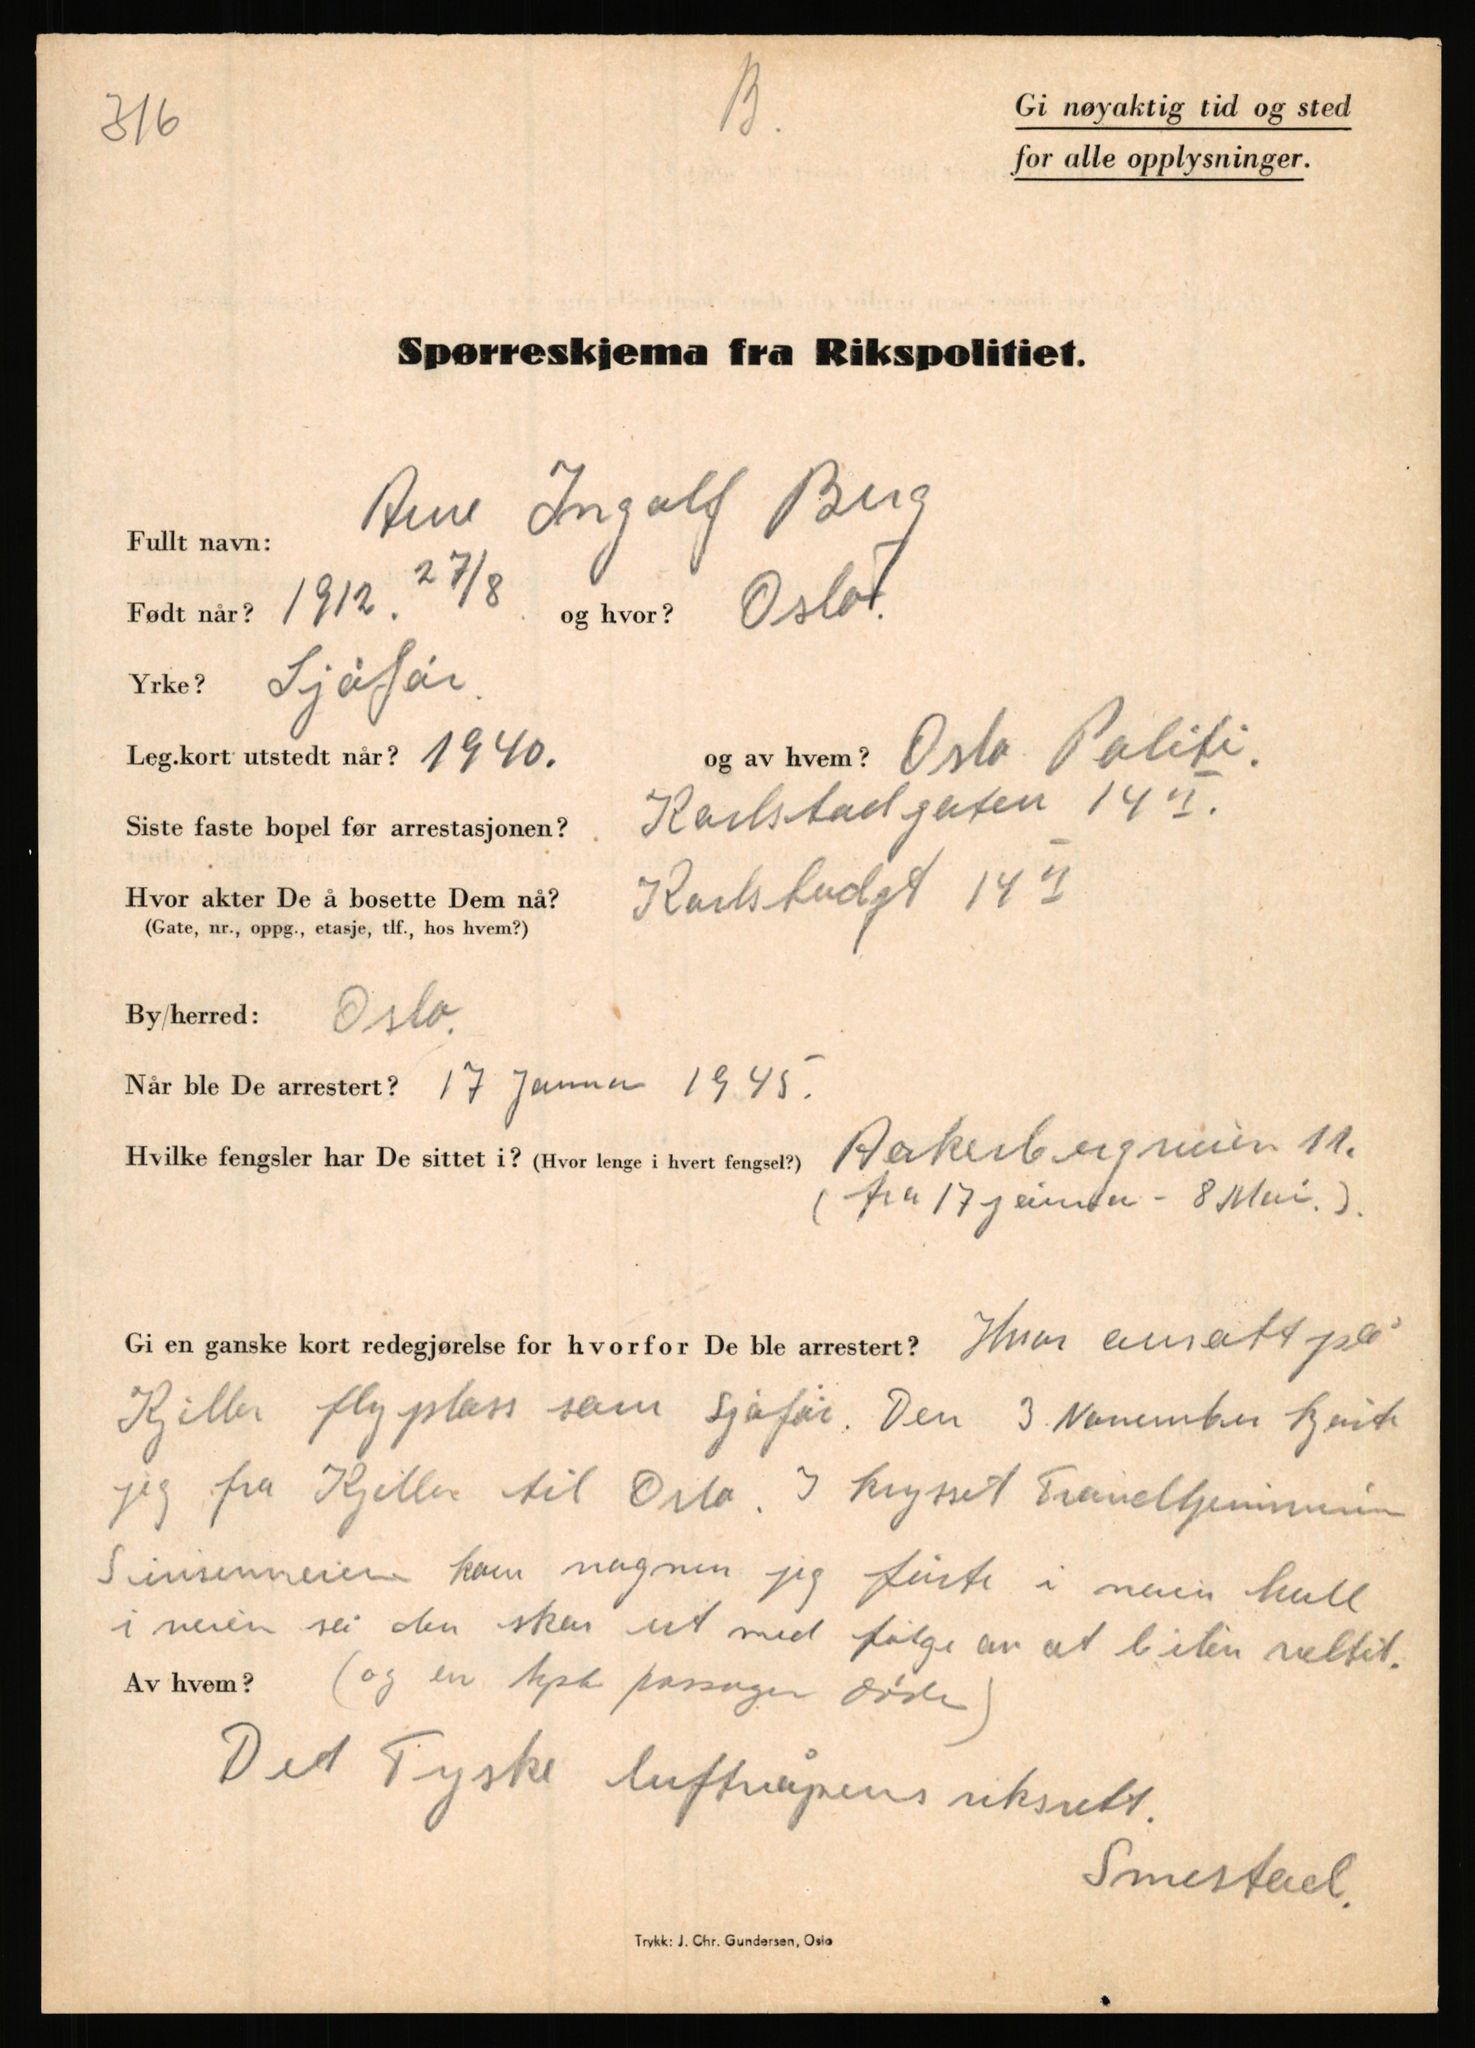 316
B.
Gi nøyaktig tid og sted
for alle opplysninger.
Spørreskjema fra Rikspolitiet.
Fullt navn: Arne Ingolf Berg
Født når? 1912. 27/8 og hvor? Oslo.
Yrke? Sjåfør.
Leg.kort utstedt når? 1940. og av hvem? Oslo Politi.
Siste faste bopel før arrestasjonen? Karlstadgaten 14 II.
Hvor akter De å bosette Dem nå? Karlstadgt 14 II
(Gate, nr., oppg., etasje, tlf., hos hvem?)
By/herred: Oslo.
Når ble De arrestert? 17 Januar 1945.
Hvilke fengsler har De sittet i? (Hvor lenge i hvert fengsel?) Aakerbergveien 11.
(fra 17 januar - 8 Mai.).
Gi en ganske kort redegjørelse for hvorfor De ble arrestert? ansatt på
Kjeller flyplass som sjåfør. Den 3 November kjørte
jeg fra Kjeller til Oslo. I krysset Trondhjemsveien
Sinsenveien kom vognen jeg førte i noen hull
i veien så den skar ut med følge av at bilen veltet.
Av hvem? (og en tysk passager døde)
Det Tyske luftvåpens riksrett.
Smestad.
Trykk: J. Chr. Gundersen, Oslo